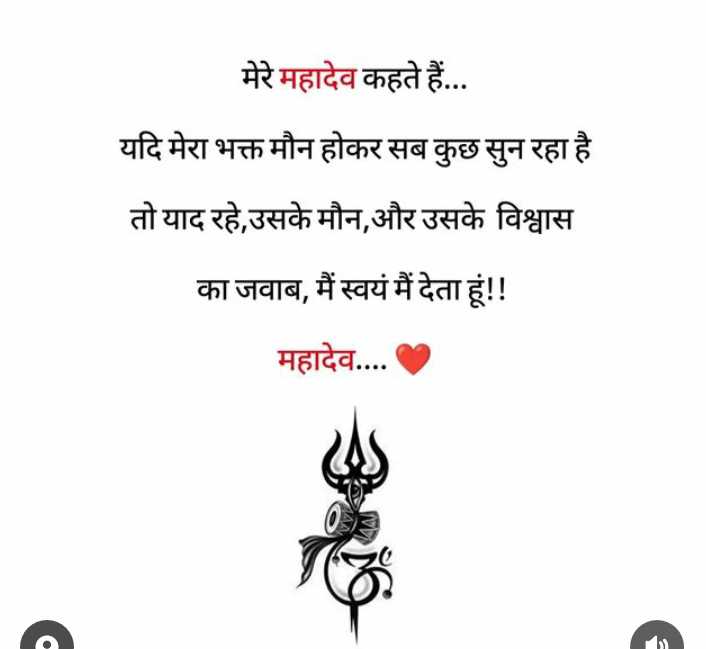 मेरे महादेव कहते हैं...
यदि मेरा भक्त मौन होकर सब कुछ सुन रहा है
तो याद रहे,उसके मौन,और उसके विश्वास
का जवाब, मैं स्वयं मैं देता हूं!!
महादेव.... ❤️
ॐ